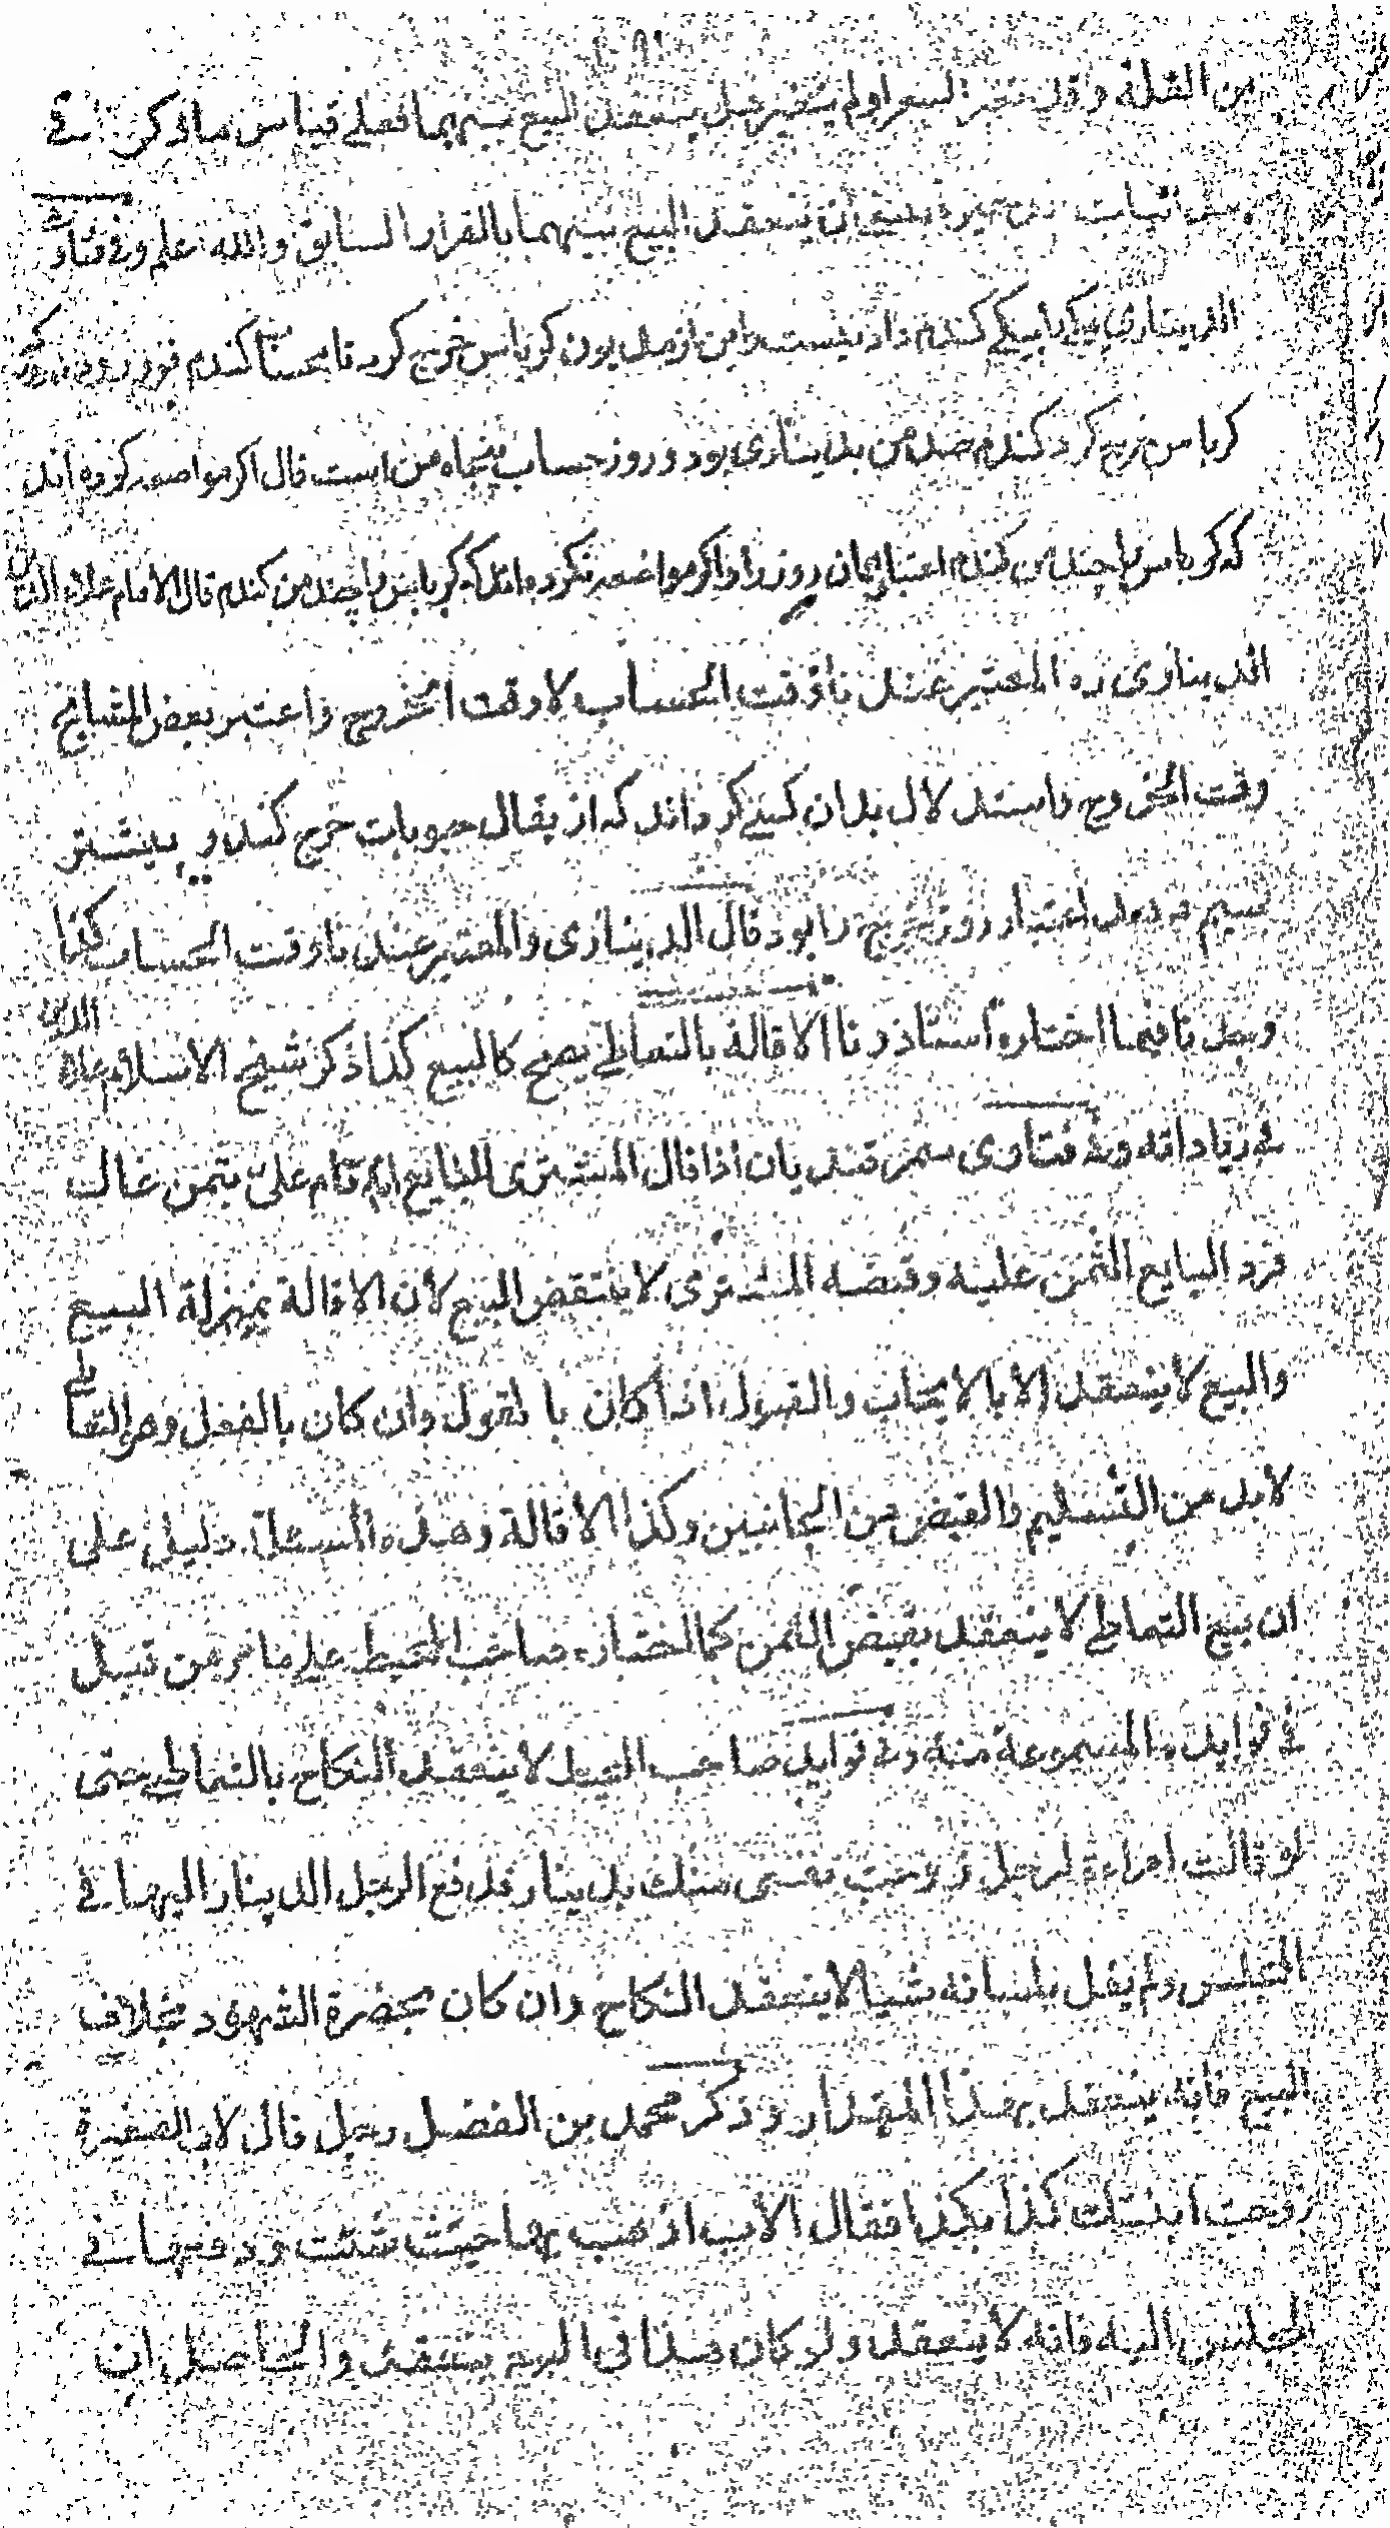 من الغلة وان تغير السعر او لم يتغير هل ينعقد البيع بينهما فعلى قياس ما ذكر في
ينبغي ان ينعقد البيع بينهما بالقرار السابق والله اعلم وفي فتاوى
الديناري يكى با يكى كندم داد نيست من از بدل يون كرباس خرج كرد تا كندم
كرباس خرج كرد كندم صد من بديناري بود و روز حساب پنجاه من است قال اكر مواضعه كرده اند
كه كرباس را چند من كندم اعتبار همان روز را و اكر مواضعه نكرده اند كه كرباس را چند من كندم قال الامام علاء الدين
الديناري ره المعتبر عندنا وقت الحساب لا وقت الخروج واعتبر بعض المشايخ
وقت الخروج واستدلال بدان كسى كرداند كه از بقال حبوبات خرج كند و پيشتر
سيم اعتبار روز خرج را بود قال الديناري والمعتبر عندنا وقت الحساب كذا
وجدنا فيما اختاره استاذنا الاقالة بالتعاطي يصح كالبيع كذا ذكر شيخ الاسلام علاء الدين
في زياداته وفي فتاوى سمرقنديان اذا قال المشتري للبايع انه قام علي بثمن غال
فرد البايع الثمن عليه وقبضه المشتري لا ينتقض البيع لأن الاقالة بمنزلة البيع
والبيع لا ينعقد الا بالايجاب والقبول اذا كان با لقول وان كان بالفعل وهو التعاطي
لا بد من التسليم والقبض من الجانبين وكذا الاقالة وهذه المسئلة دليل على
ان بيع التعاطي لا ينعقد بقبض الثمن كما اختاره صاحب المحيط على ما مر من قبل
في فوايده المسموعة منه وفي فوايد صاحب المحيط لا ينعقد النكاح بالتعاطي حتى
لو قالت امراءة لرجل زوجت نفسي منك بدينار فدفع الرجل الدينار اليها في
المجلس ولم يقل بلسانه شيا لا ينعقد النكاح وان كان بحضرة الشهود بخلاف
البيع فانه ينعقد بهذا المقدار وذكر محمد بن الفضل رجل قال لاب الصغيرة
زوجت ابنتك كذا بكذا فقال الأب اذهب بها حيث شئت ودفعها في
المجلس اليه فانه لا ينعقد ولو كان هذا في البيع ينعقد والحاصل ان